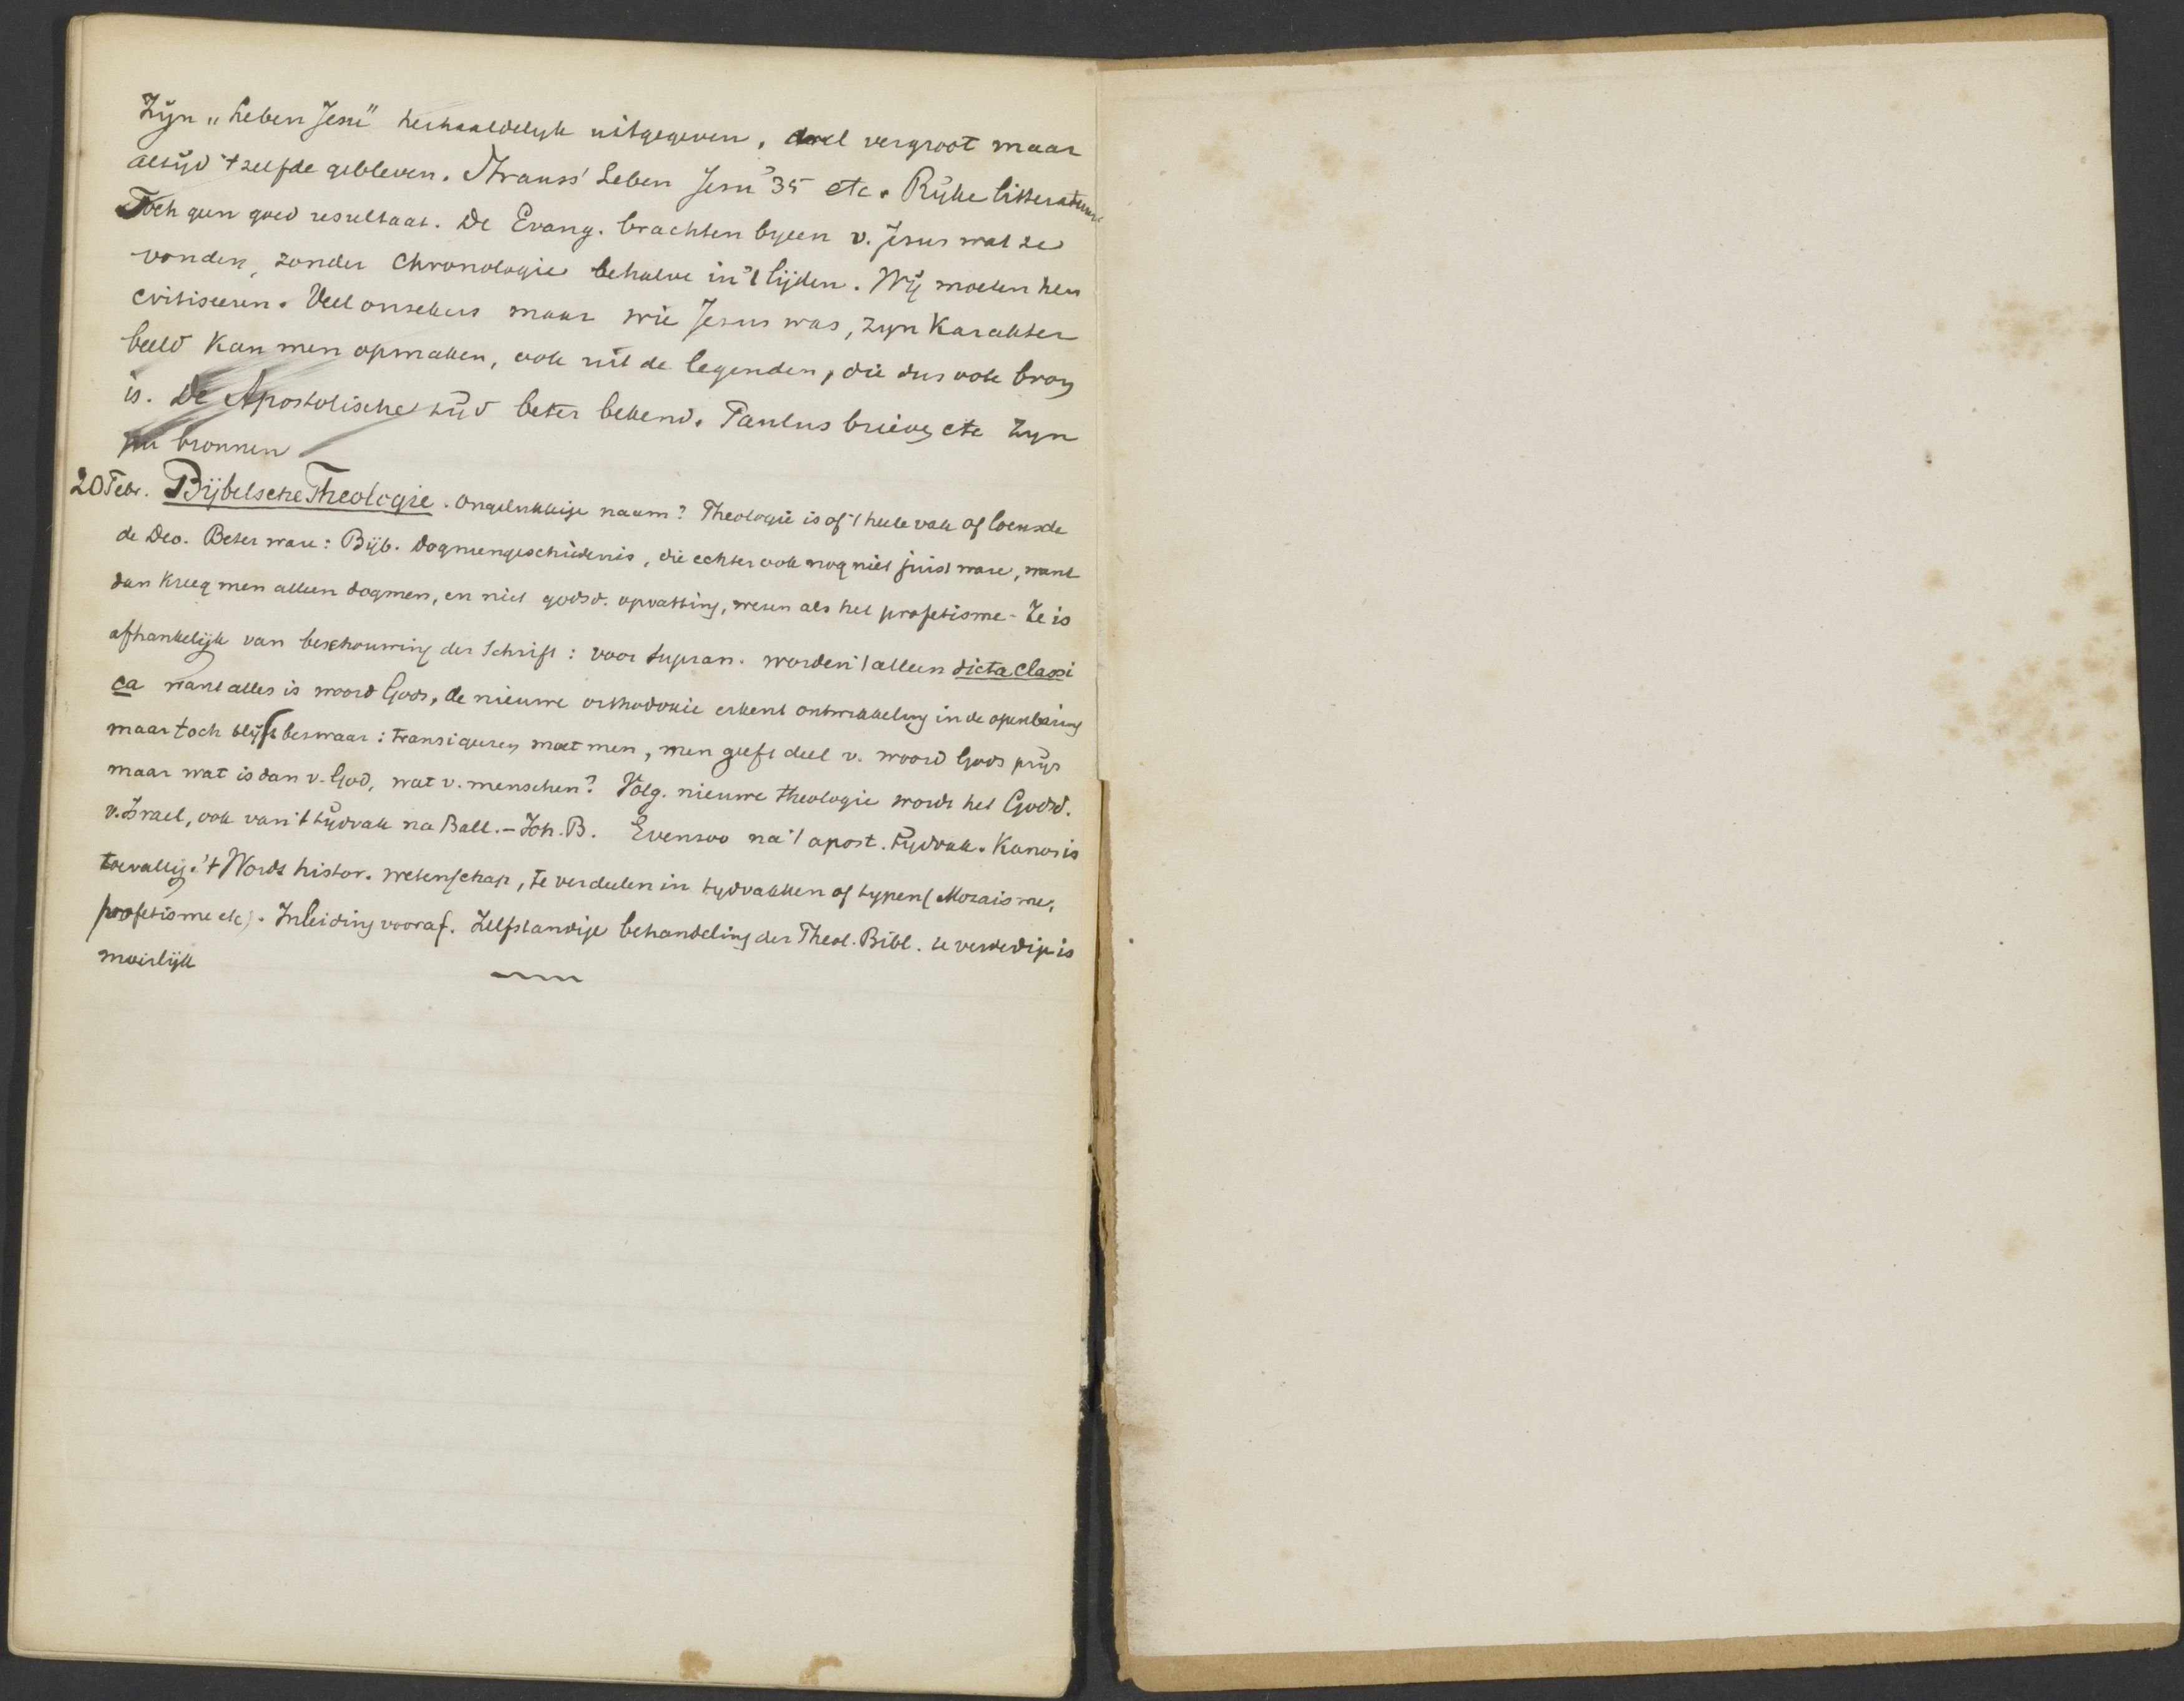 Zijn „Leben Jesu" herhaaldelijk uitgegeven, veel vergroot maar
altijd 't zelfde gebleven. Strauss' Leben Jesu '35 etc. Rijke litteratuur
Toch geen goed resultaat. De Evang. brachten byeen v. Jesus wat ze
vonden, zonder chronologie behalve in 't lijden. Wij moeten hen
critiseeren. Veel onzekers maar wie Jesus was, zyn Karakter
beeld kan men opmaken, ook uit de legenden, die dus ook bron
is. De Apostolische tijd beter bekend. Paulus brieven etc zyn
nu bronnen
20 Febr. Bijbelsche Theologie. Ongelukkige naam? Theologie is of 't heele vak of locus de
de Deo. Beter ware: Bijb. Dogmengeschiedenis, die echter ook nog niet juist ware, want
dan kreeg men alleen dogmen, en niet godsd. opvatting, wezen als het profetisme - Ze is
afhankelijk van beschouwing der Schrift: voor supran. worden 't alleen dicta classi
ca want alles is woord Gods, de nieuwe orthodoxie erkent ontwikkeling in de openbaring
maar toch blijft bezwaar: transigeren moet men, men geeft deel v. woord Gods prijs
maar wat is dan v. God, wat v. menschen? Volg. nieuwe theologie wordt het Godsd.
v. Israel, ook van 't tijdvak na Ball. - Joh. B. Evenzoo na 't apost. tijdvak. Kanon is
toevallig. 't Wordt histor. wetenschap, te verdeelen in tydvakken of typen (Mozaisme,
profetisme etc). Inleiding vooraf. Zelfstandige behandeling der Theol. Bibl. te verdedigen is
moeilijk